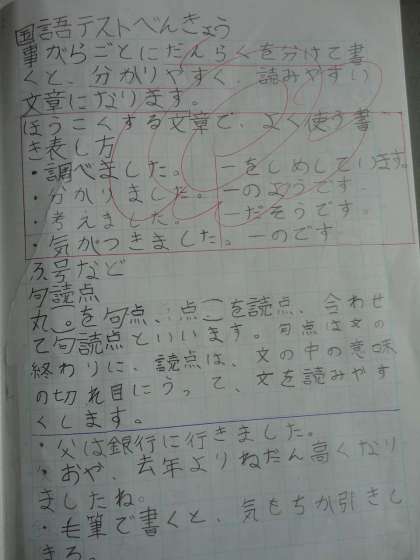 国語テストべんきょう
事がらごとにだんらくを分けて書
くと、分かりやすく、読みやすい
文章になります。
ほうこくする文章で、よく使う書
き表し方
・調べました。 ーをしめしています。
・分かりました。 ーのようです
・考えました。 ーだそうです。
・気がつきました。ーのです
ふ号など
句読点
丸(。)を句点、点(、)を読点、合わせ
て句読点といいます。句点は文の
終わりに、読点は、文の中の意味
の切れ目にうって、文を読みやす
くします。
・父は銀行に行きました。
・おや、去年よりねだん高くなり
ましたね。
・毛筆で書くと、気もちが引きし
まる。